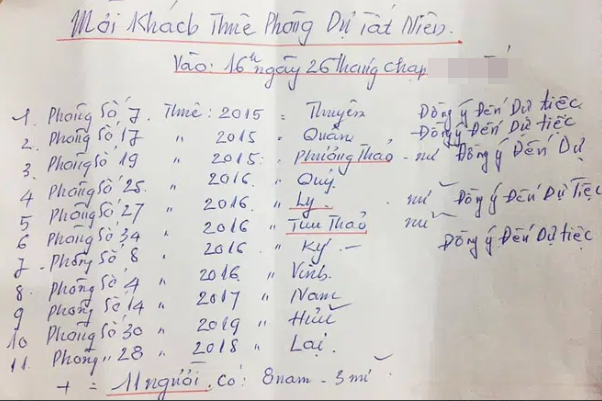 Mời Khách Thuê Phòng Dự Tất Niên.
Vào: 16h ngày 26 tháng chạp
1. Phòng Số 7. Thuê: 2015 = Thuyên Đồng ý Đến Dự tiệc
2. Phòng Số 17 " 2015 " Quân Đồng ý Đến Dự tiệc
3. Phòng Số 19 " 2015. Phương Thảo - nữ Đồng Ý Đến Dự
4 Phòng Số 25. " 2016. " Quý.
5 Phòng Số 27 " 2016. " Ly. nữ Đồng ý Đến Dự Tiệc
6 Phòng Số 34 " 2016 " Thu Thảo nữ
7 - Phòng Số 8 " 2016. " Ký - Đồng ý Đến Dự tiệc
8. Phòng Số 4 " 2016 " Vinh.
9 Phòng Số 14 " 2017 " Nam
10 Phòng Số 30 " 2019 " Hữu
11. Phòng " 28 " 2018 " Lại.
+ = 11 người. Có: 8 nam - 3 nữ